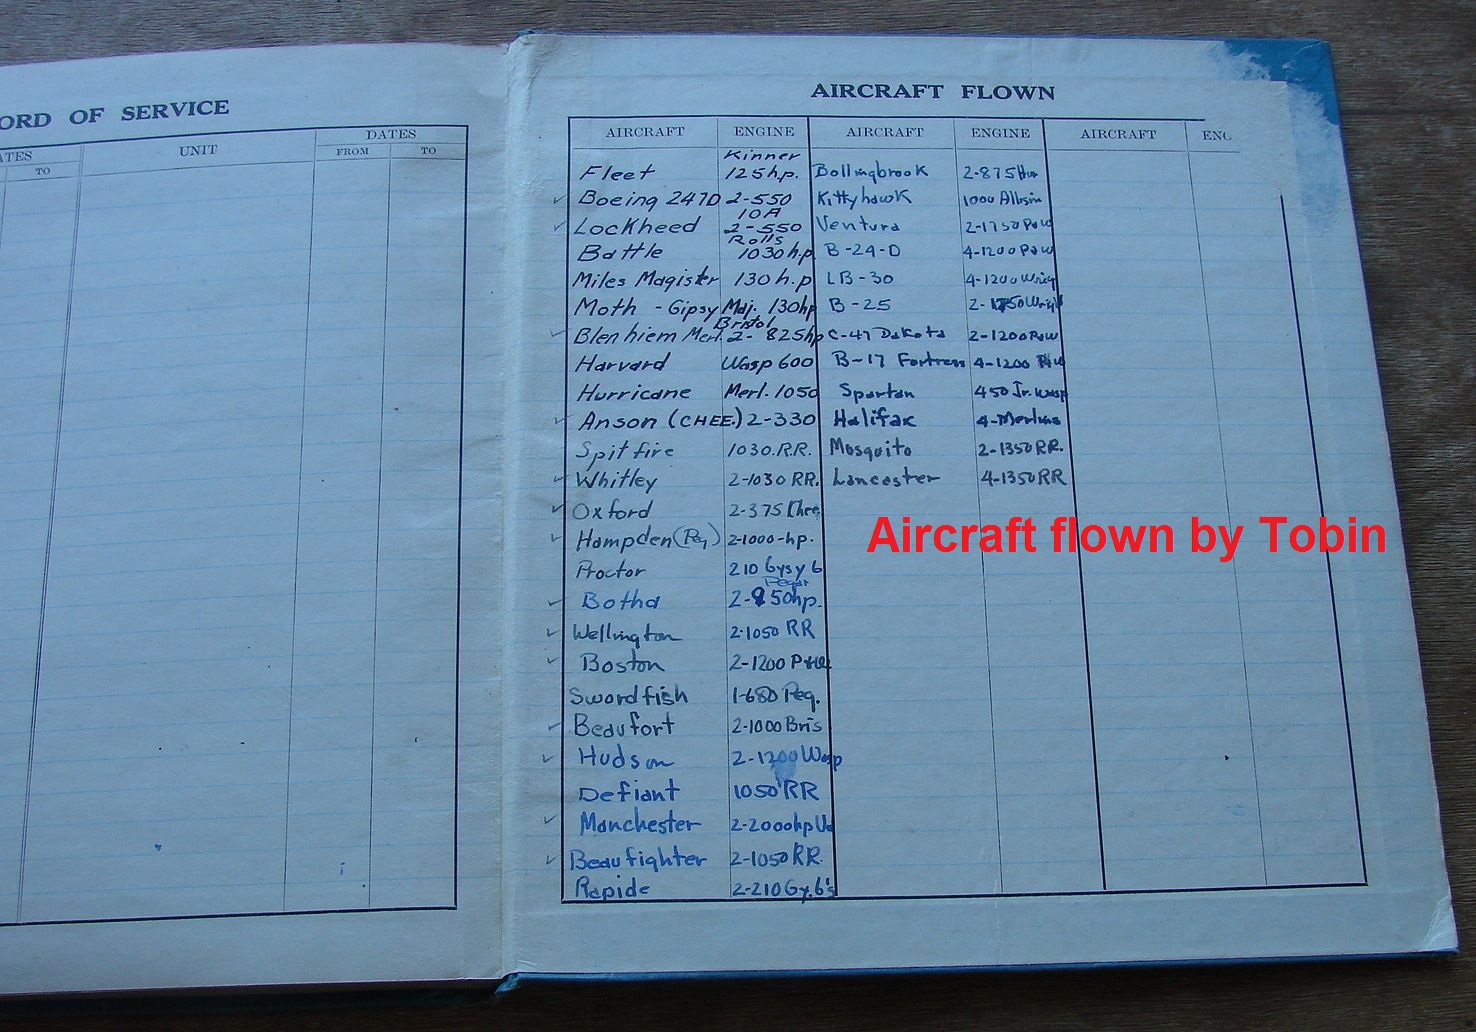 ORD OF SERVICE
DATES
ATES UNIT FROM TO
TO
AIRCRAFT FLOWN
AIRCRAFT ENGINE AIRCRAFT ENGINE AIRCRAFT ENG
Kinner
Fleet 125 h.p. Bollingbrook 2-875
Boeing 247D 2-550 Kittyhawk 1000 Allison
10A
Lockheed 2-550 Ventura 2-1750 P&W
Rolls
Battle 1030 h.p B-24-D 4-1200 P&W
Miles Magister 130 h.p LB-30 4-1200 Wrig
Moth - Gipsy Maj. 130hp B-25 2-1750 Wrigh
Bristol
Blenhiem Merl. 2-825hp C-47 Dakota 2-1200 P&W
Harvard Wasp 600 B-17 Fortress 4-1200
Hurricane Merl. 1050 Spartan 450 Jr. Wasp
Anson (CHEE.) 2-330 Halifax 4-Merlins
Spitfire 1030.R.R. Mosquito 2-1350 RR.
Whitley 2-1030 RR. Lancester 4-1350 RR
Oxford 2-375 Chee
Hampden (Peg) 2-1000-hp.
Aircraft flown by Tobin
Proctor 210 Gysy 6
Botha 2-850hp.
Wellington 2-1050 RR
Boston 2-1200 P+W
Swordfish 1-680 Peg.
Beaufort 2-1000 Bris
Hudson 2-1200 Wasp
Defiant 1050 RR
Manchester 2-2000hp
Beaufighter 2-1050 RR.
Rapide 2-210 Gy. 6's